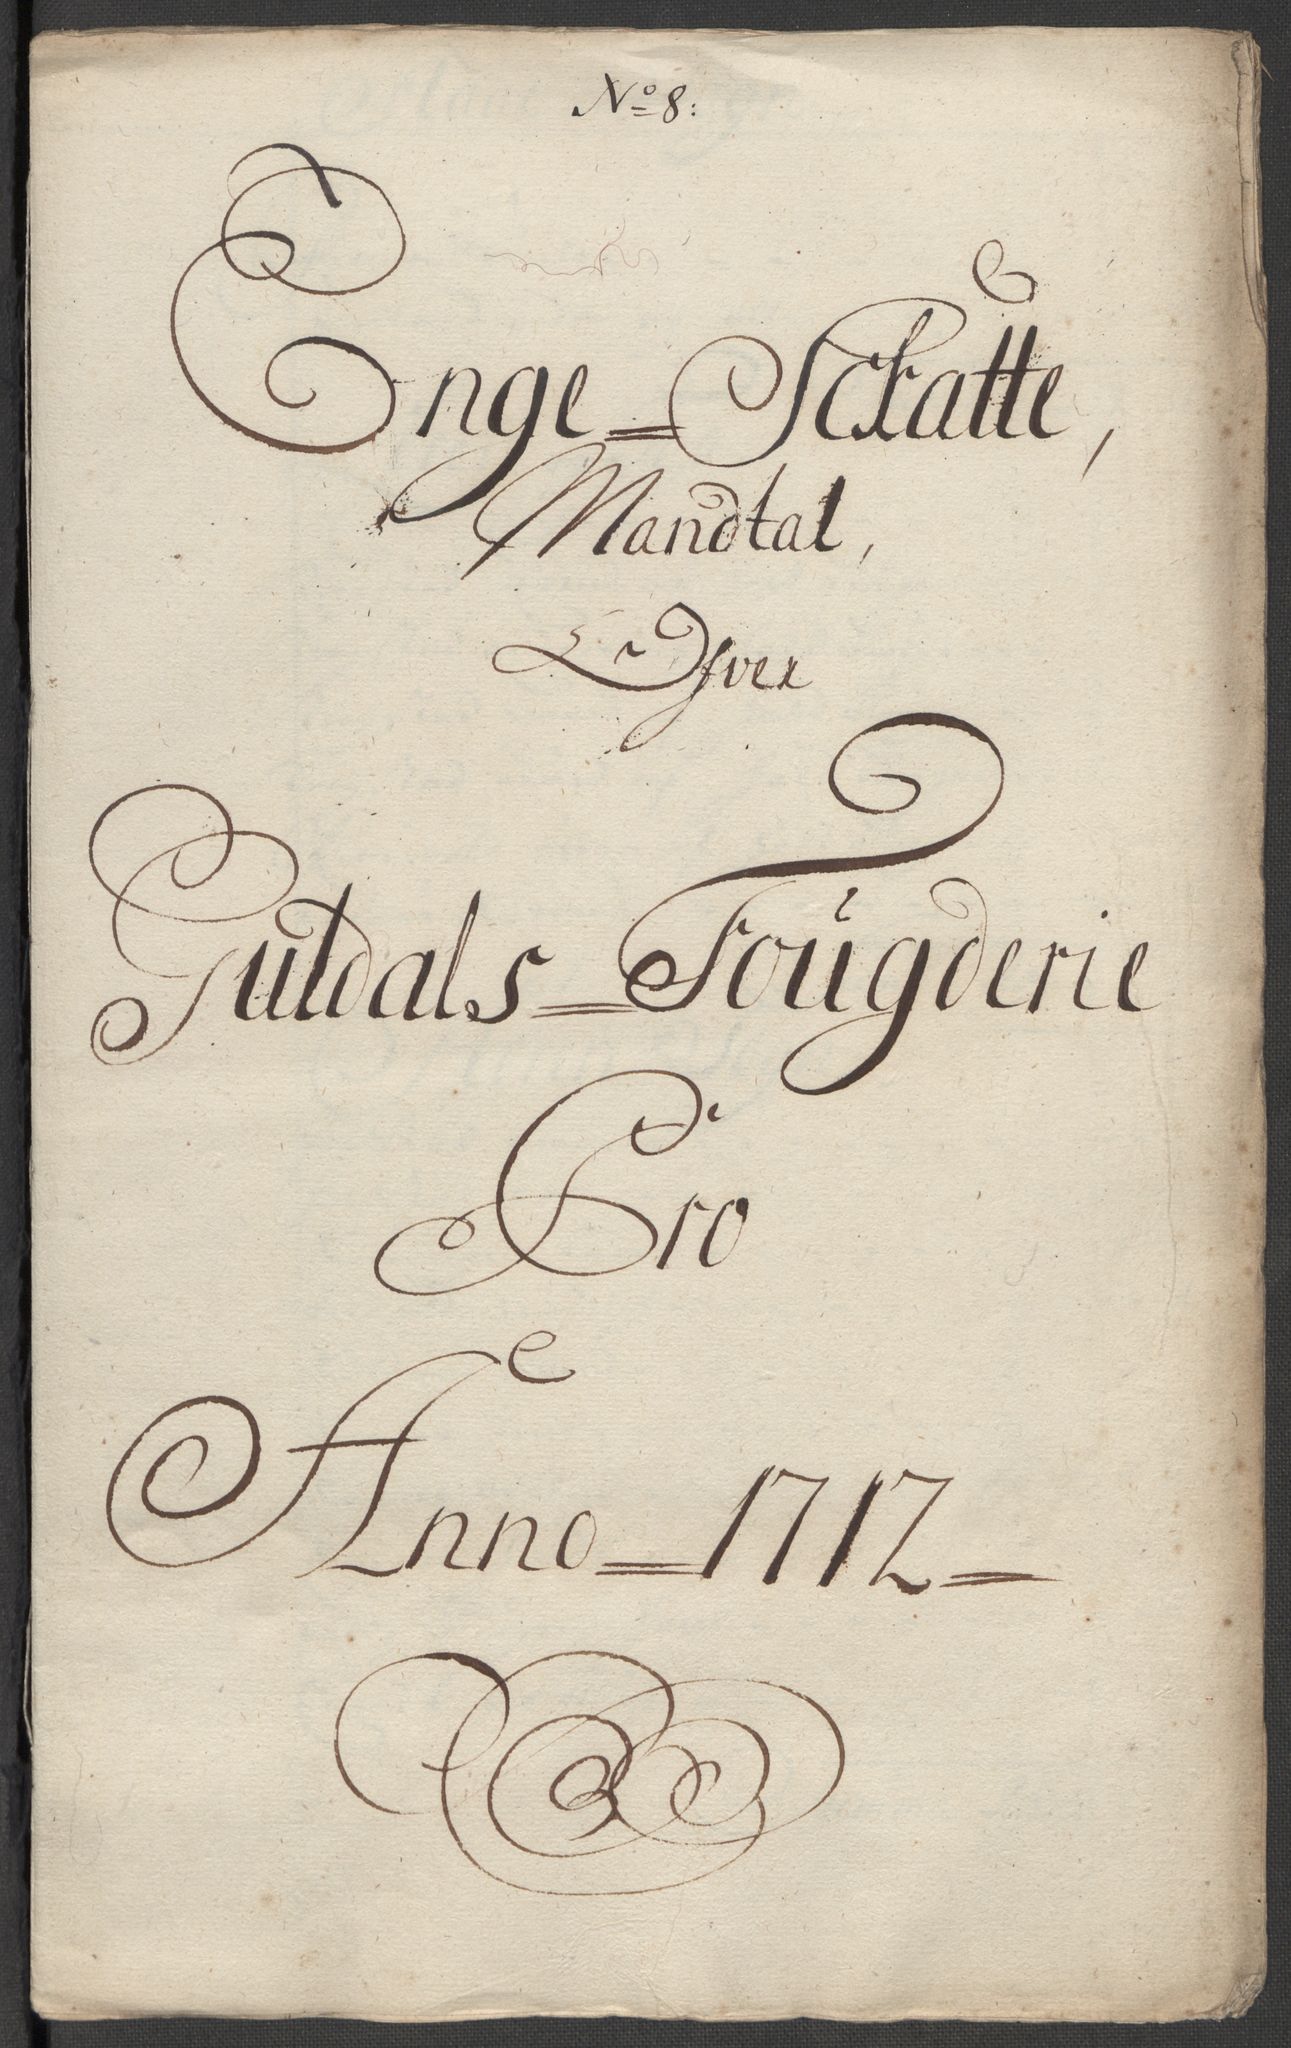 No 8:
Enge=Schatte,
Mandtal,
Ofver
Guldals=Fougderie
Pro
Anno=1712=